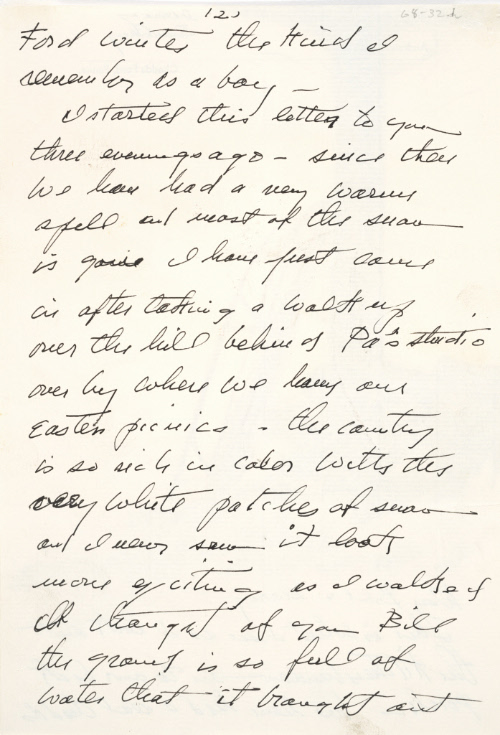 (2)
68-32.h
Ford winter the kind I
remember as a boy –
I started this letter to you
three evenings ago – since then
We have had a very warm
spell and most of the snow
is gone I have just come
in after taking a walk up
over the hill behind Pa's studio
over by where we have our
Easter picnics – the country
is so rich in color with the
very white patches of snow
and I never saw it look
more exciting as I walked
I thought of you Bill
the ground is so full of
water that it brought out